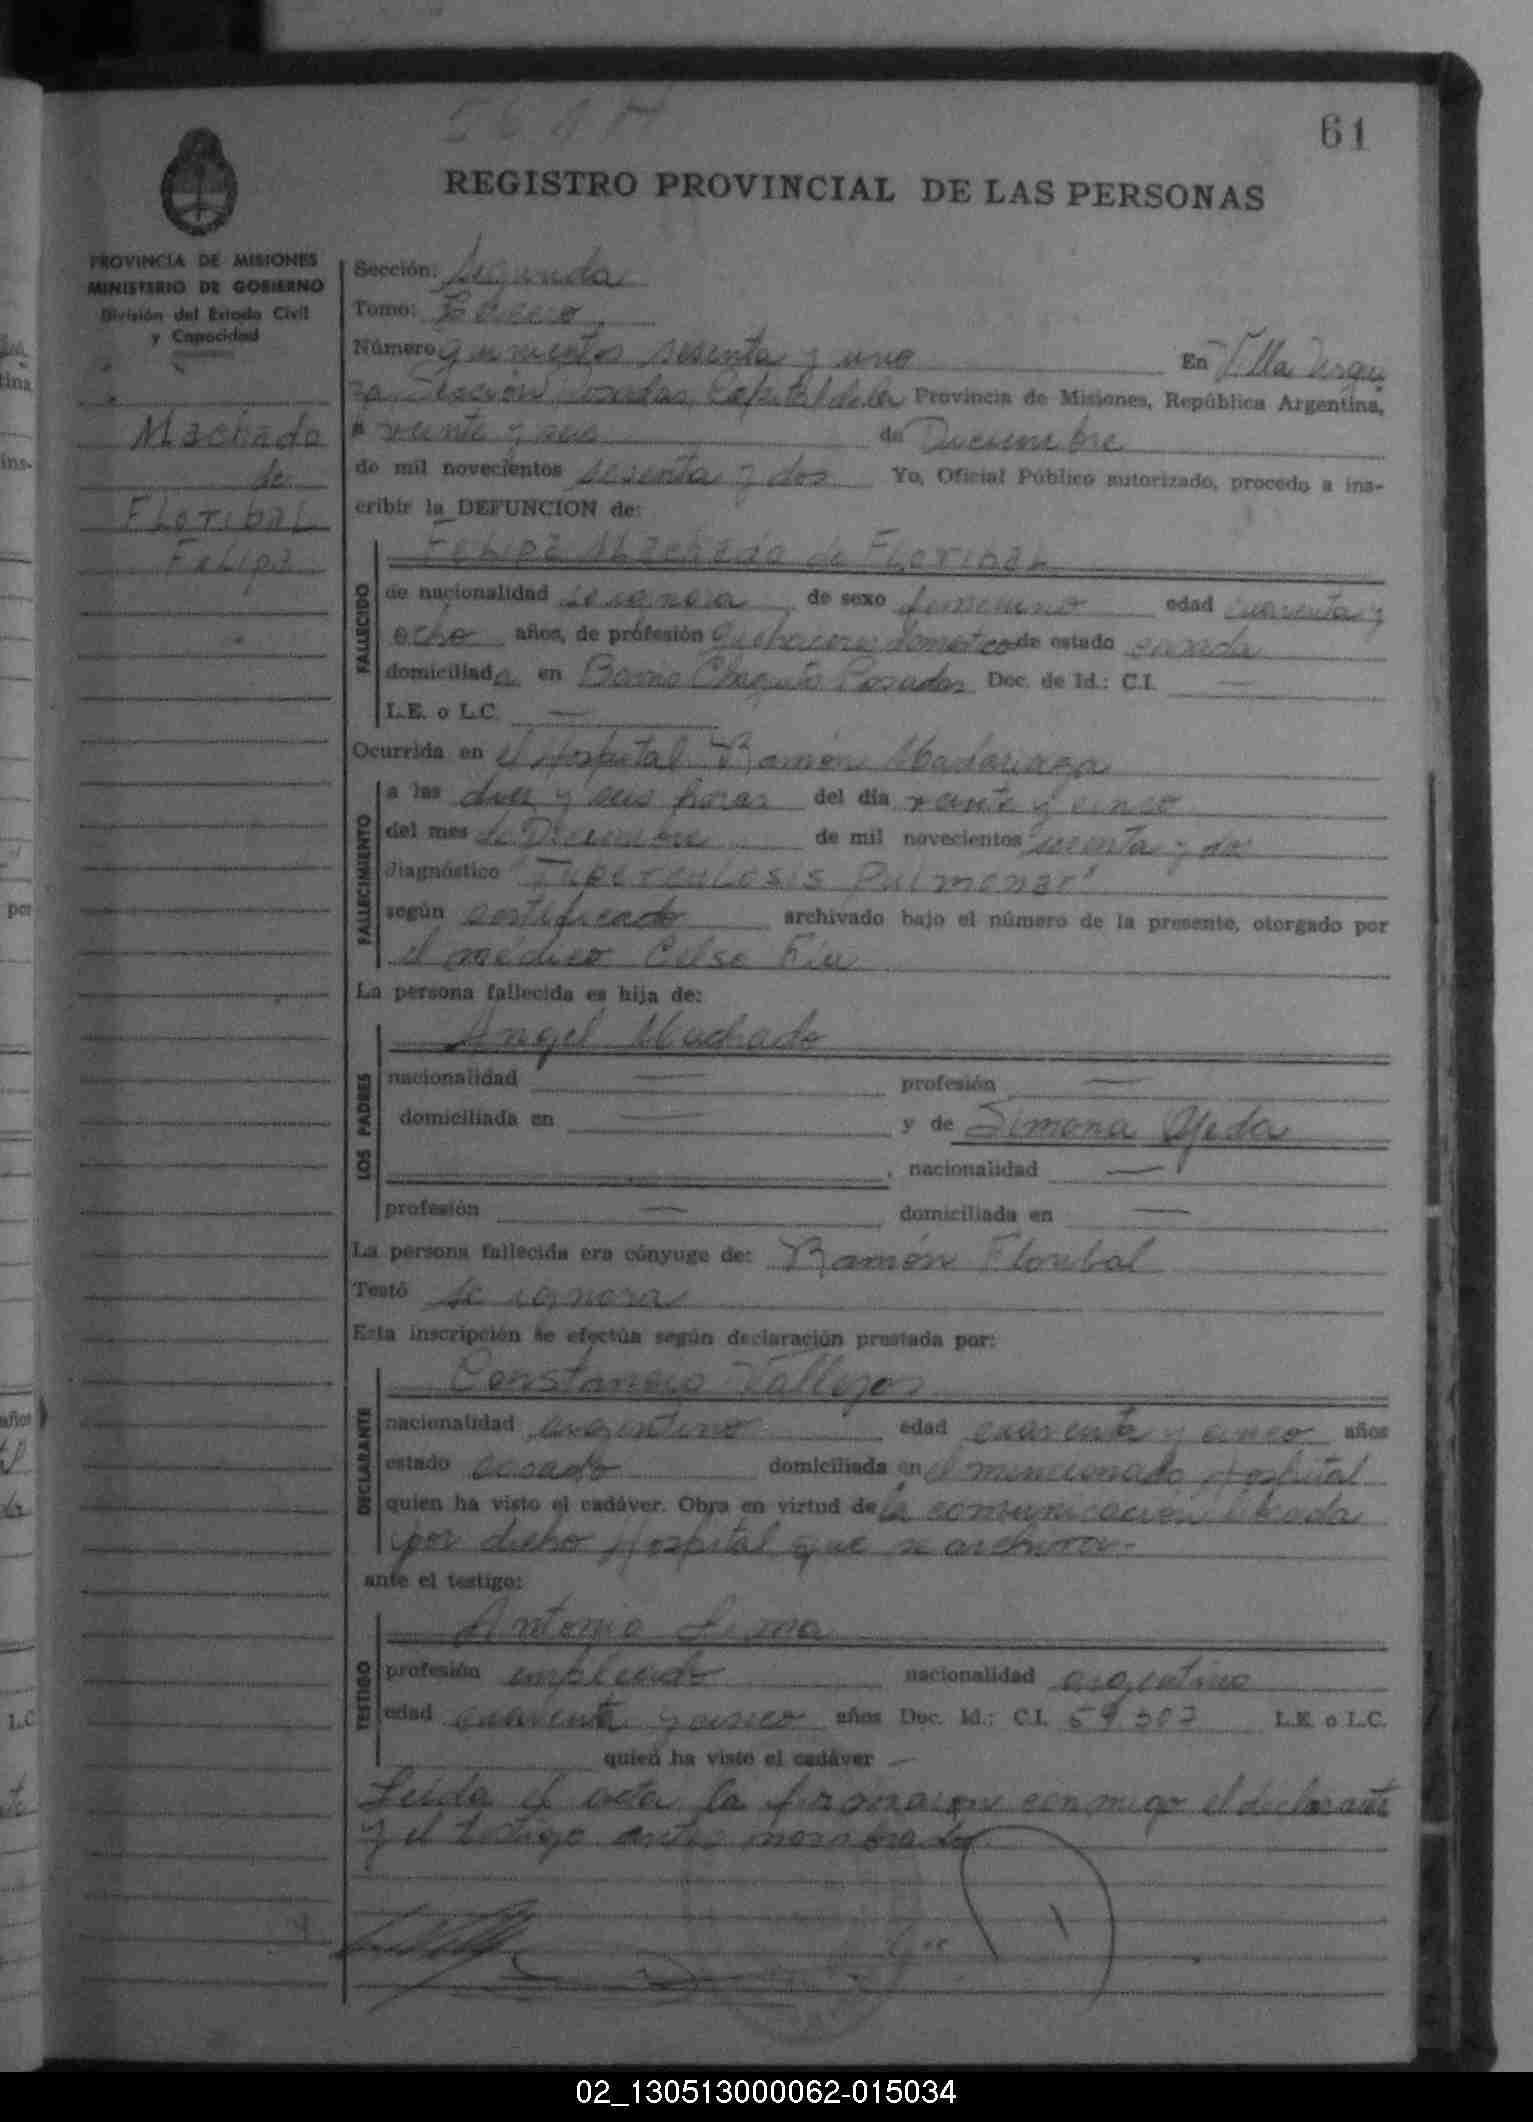 561 M
61
REGISTRO PROVINCIAL DE LAS PERSONAS
PROVINCIA DE MISIONES
MINISTERIO DE GOBIERNO
División del Estado Civil
y Capacidad
Machado
de
FLORIBAL
Felipa
Sección: Segunda
Tomo: Tercero
Número quinientos sesenta y uno En Villa Urqui
za Sección Posadas Capital de la Provincia de Misiones, República Argentina,
a veinte y seis de Diciembre
de mil novecientos sesenta y dos Yo, Oficial Público autorizado, procedo a ins-
cribir la DEFUNCION de:
FALLECIDO
Felipa Machado de FLoribaL
de nacionalidad se ignora de sexo femenino edad cuarenta y
ocho años, de profesión quehaceres domestico de estado casada
domiciliada en Barrio Chaquito Posadas Doc. de Id.: C.I. —
L.E. o L.C. —
Ocurrida en el Hospital Ramón Madariaga
FALLECIMIENTO
a las diez y seis horas del día veinte y cinco
del mes de Diciembre de mil novecientos sesenta y dos
diagnóstico "Tuberculosis Pulmonar"
según certificado archivado bajo el número de la presente, otorgado por
el médico Celso
La persona fallecida es hija de:
LOS PADRES
Angel Machado
nacionalidad — profesión —
domiciliada en — y de Simona Ojeda
, nacionalidad —
profesión — domiciliada en —
La persona fallecida era cónyuge de: Ramón Floribal
Testó se ignora
Esta inscripción se efectúa según declaración prestada por:
DECLARANTE
Constancio Vallejos
nacionalidad argentino edad cuarenta y cinco años
estado casado domiciliada en el mencionado Hospital
quien ha visto el cadáver. Obra en virtud de la comunicación librada
por dicho Hospital que se archiva.-
ante el testigo:
TESTIGO
Antonio Lima
profesión empleado nacionalidad argentino
edad cuarenta y cinco años Doc. Id.: C.I. 59.507 L.E. o L.C.
quien ha visto el cadáver —
Leída el acta la firmaron conmigo el declarante
y el testigo antes nombrado
02_130513000062-015034